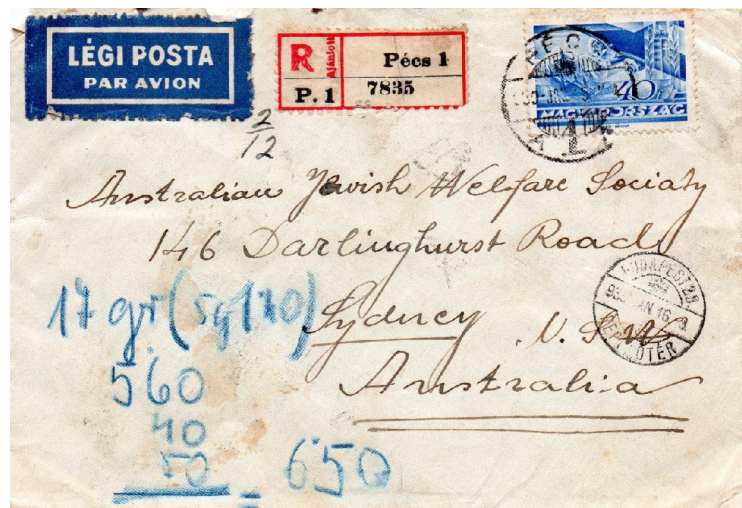 LÉGI POSTA
PAR AVION
R
Ajánlott
P. 1
Pécs 1
7835
PÉCS
40
MAGYARORSZÁG
2/12
Australian Jewish Welfare Sociaty
146 Darlinghurst Road
Sydney N.S.W.
Australia
BUDAPEST 28
JAN. 16
17 gr (5g/70)
560
40
50
= 650